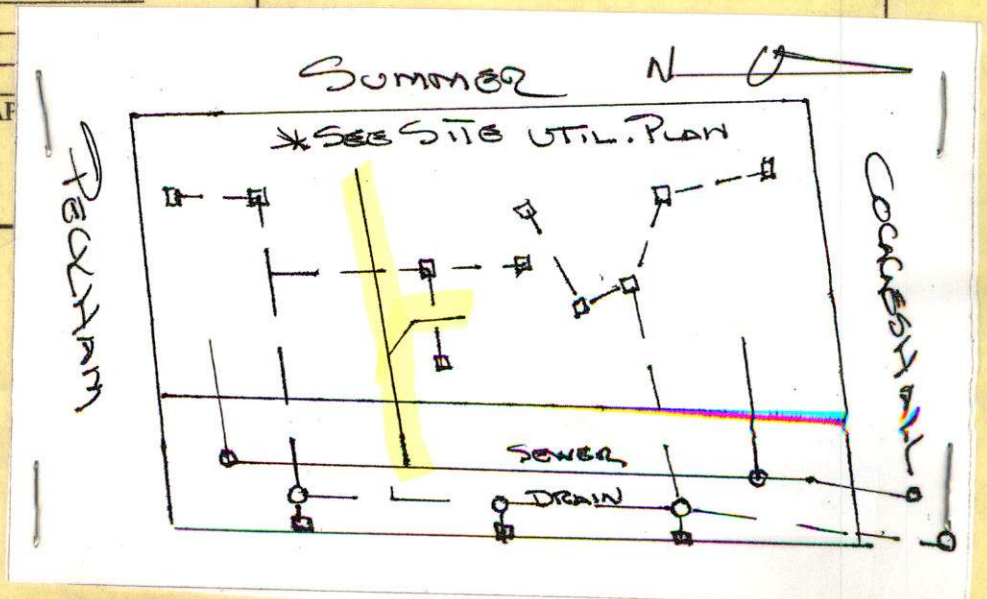 SUMMER
N
* SEE SITE UTIL. PLAN
PECKHAM
COGGESHALL
SEWER
DRAIN